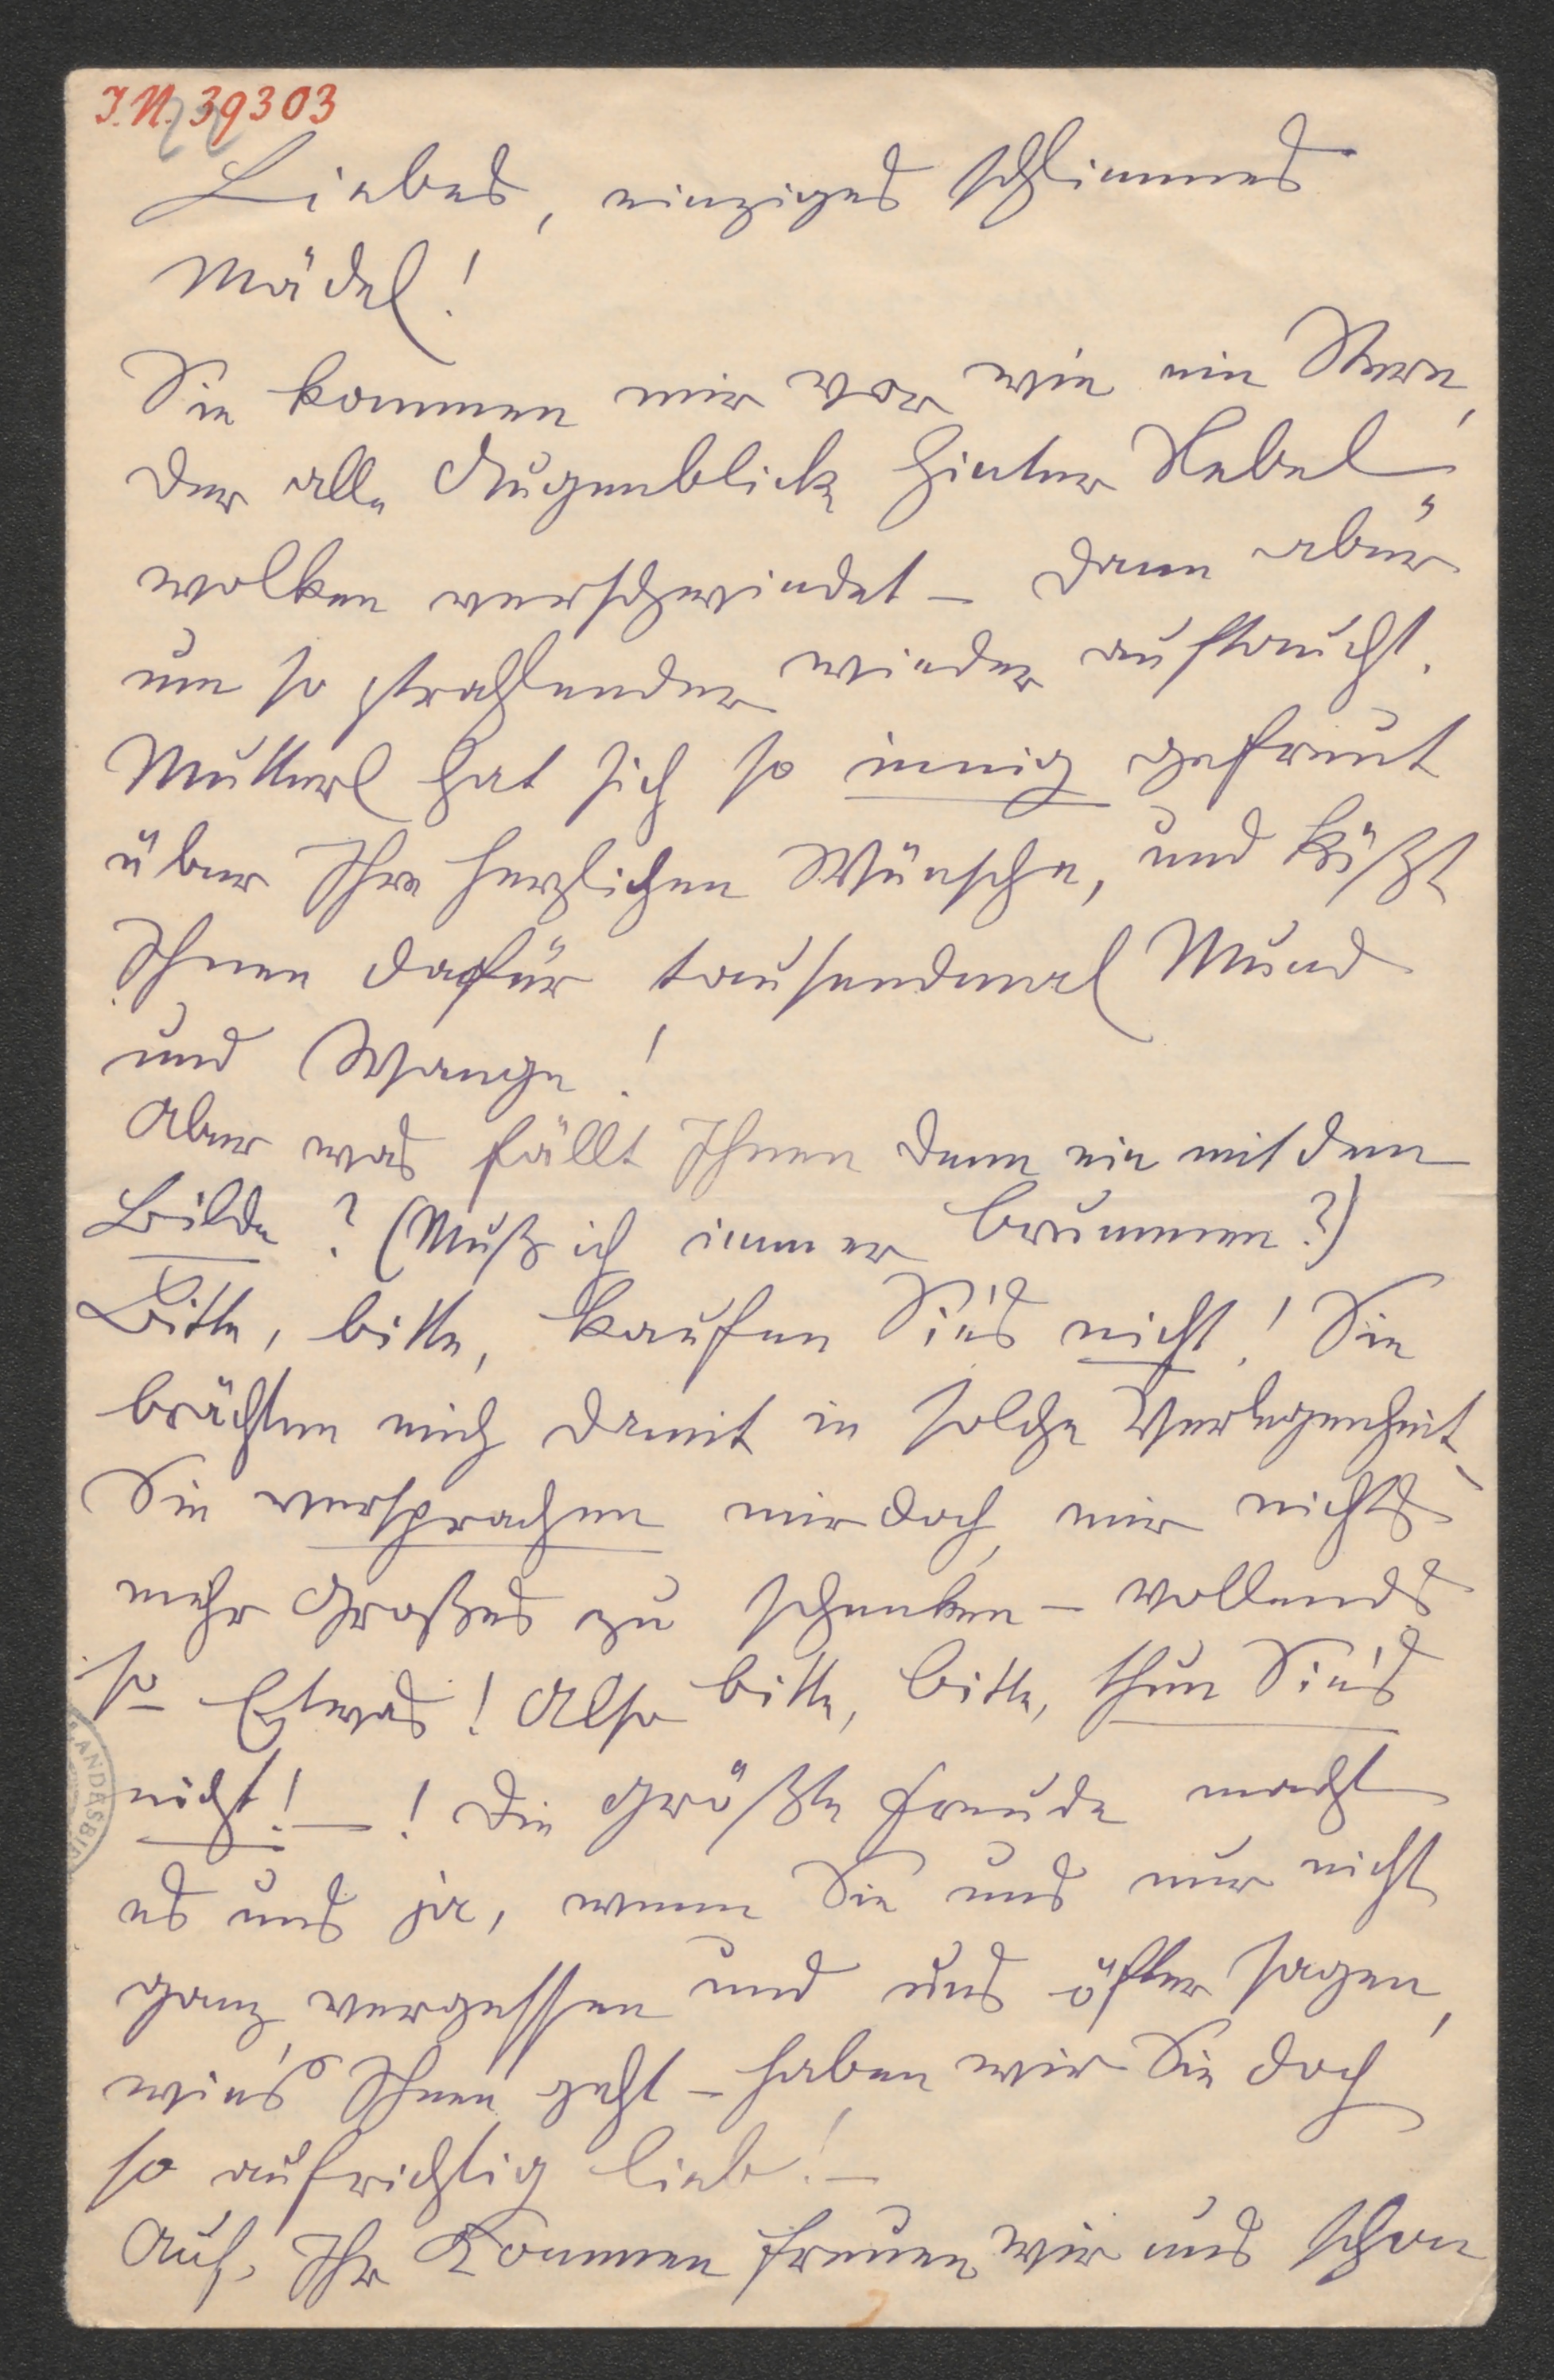 I.N. 39303
Liebes, einziges schlimmes
Mädel!
Sie kommen mir vor wie ein Stern,
der alle Augenblick hinter Nebel
wolken verschwindet – dann aber
um so strahlender wieder auftaucht.
Mutterl hat sich so innig gefreut
über Ihre herzlichen Wünsche, und küßt
Ihnen dafür tausendmal Mund
und Wange!
Aber was fällt Ihnen denn ein mit dem
Bilde? (Muß ich immer brummen?)
Bitte, bitte, kaufen Sie's nicht! Sie
brächten mich damit in solche Verlegenheit,
Sie versprachen mir doch, mir nichts
mehr Großes zu schenken – vollends
so Etwas! Also bitte, bitte, thun Sie's
nicht! – ! Die größte Freude macht
es uns ja, wenn Sie uns nur nicht
ganz vergessen und uns öfter sagen,
wie's Ihnen geht – haben wir Sie doch
so aufrichtig lieb! –
Auf Ihr Kommen freuen wir uns schon
LANDESBI